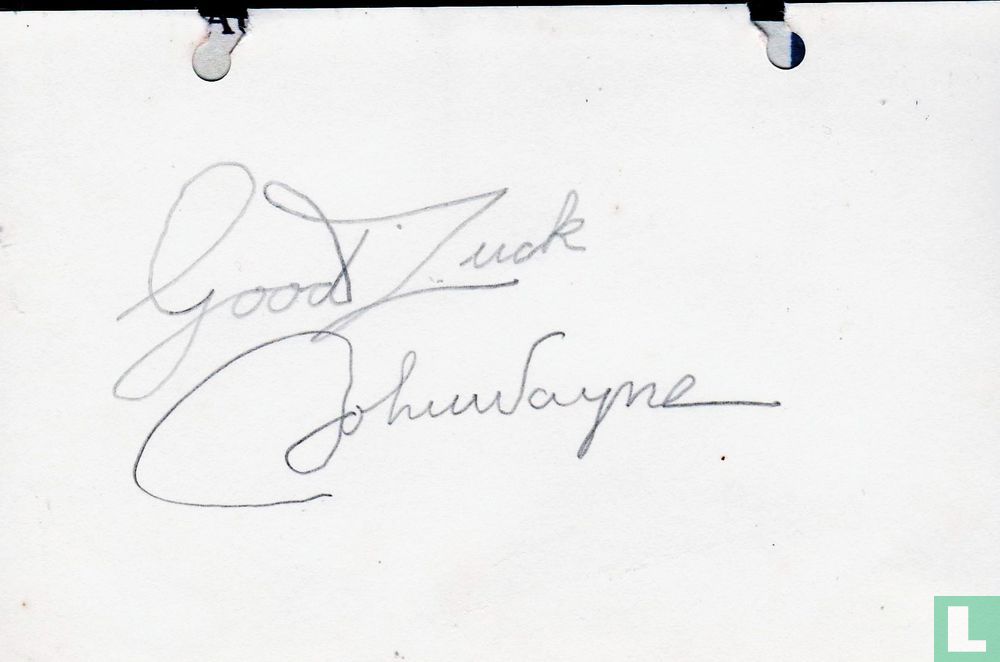 Good Luck
John Wayne
L